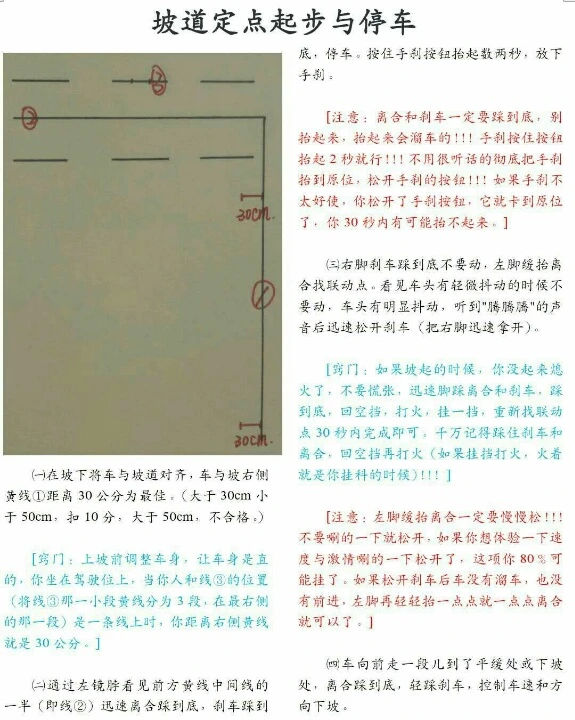 坡道定点起步与停车
③
②
30cm.
①
30cm.
㈠在坡下将车与坡道对齐，车与坡右侧
黄线①距离 30 公分为最佳。（大于 30cm 小
于 50cm，扣 10 分，大于 50cm，不合格。）
[窍门：上坡前调整车身，让车身是直
的，你坐在驾驶位上，当你人和线③的位置
（将线③那一小段黄线分为 3 段，在最右侧
的那一段）是一条线上时，你距离右侧黄线
就是 30 公分。]
㈡通过左镜脖看见前方黄线中间线的
一半（即线②）迅速离合踩到底，刹车踩到
底，停车。按住手刹按钮抬起数两秒，放下
手刹。
[注意：离合和刹车一定要踩到底，别
抬起来，抬起来会溜车的!!! 手刹按住按钮
抬起 2 秒就行!!! 不用很听话的彻底把手刹
抬到原位，松开手刹的按钮!!! 如果手刹不
太好使，你松开了手刹按钮，它就卡到原位
了，你 30 秒内有可能抬不起来。]
㈢右脚刹车踩到底不要动，左脚缓抬离
合找联动点。看见车头有轻微抖动的时候不
要动，车头有明显抖动，听到"腾腾腾"的声
音后迅速松开刹车（把右脚迅速拿开）。
[窍门：如果坡起的时候，你没起来熄
火了，不要慌张，迅速脚踩离合和刹车，踩
到底，回空挡，打火，挂一挡，重新找联动
点 30 秒内完成即可。千万记得踩住刹车和
离合，回空挡再打火（如果挂挡打火，火着
就是你挂科的时候）!!! ]
[注意：左脚缓抬离合一定要慢慢松!!!
不要唰的一下就松开，如果你想体验一下速
度与激情唰的一下松开了，这项你 80％可
能挂了。如果松开刹车后车没有溜车，也没
有前进，左脚再轻轻抬一点点就一点点离合
就可以了。]
㈣车向前走一段儿到了平缓处或下坡
处，离合踩到底，轻踩刹车，控制车速和方
向下坡。